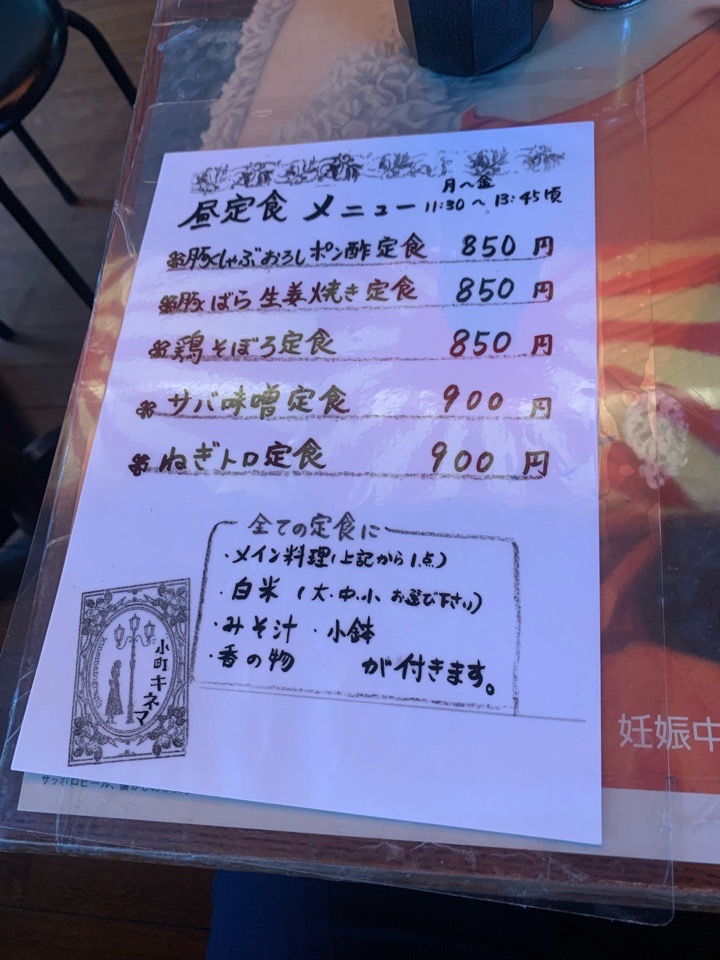 月〜金
昼定食 メニュー 11:30 〜 13:45頃
豚しゃぶおろしポン酢定食 850 円
豚ばら生姜焼き定食 850 円
鶏そぼろ定食 850 円
サバ味噌定食 900 円
ねぎトロ定食 900 円
全ての定食に
・メイン料理(上記から1点)
・白米 (大・中・小 お選び下さい)
・みそ汁 ・小鉢
・香の物 が付きます。
小町キネマ
妊娠中
サッポロビール、